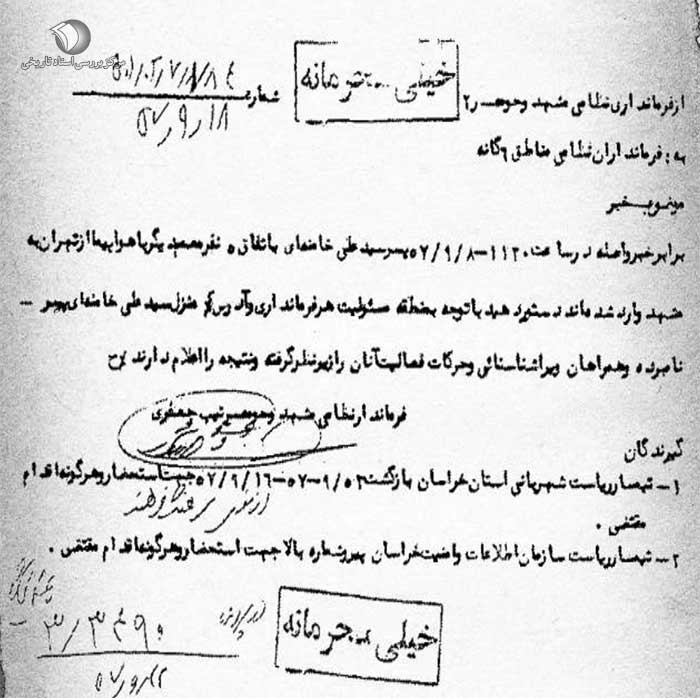 مرکز بررسی اسناد تاریخی
خیلی محرمانه
از فرمانداری نظامی مشهد وحومه ر۲ شماره
۱۸ر۹ر۵۷
به : فرمانداران نظامی مناطق ۶ گانه
برابر خبر واصله در ساعت ۱۱۲۰-۵۷/۹/۸ پسر سید علی خامنه‌ای باتفاق ۵ نفر معمم دیگر با هواپیما از تهران به
مشهد وارد شده‌اند دستور دهید با توجه بمنطقه مسئولیت هر فرمانداری و آدرس منزل سید علی خامنه‌ای
نامبرده و همراهان ویرا شناسائی و حرکات فعالیت آنان را زیر نظر گرفته و نتیجه را اعلام دارند
فرماندار نظامی مشهد وحومه سرتیپ جعفری
گیرندگان
۱- تیمسار ریاست شهربانی استان خراسان بازگشت جهت استحضار و هرگونه اقدام
مقتضی .
۲- تیمسار ریاست سازمان اطلاعات وامنیت خراسان پیرو شماره بالا جهت استحضار و هرگونه اقدام مقتضی .
خیلی محرمانه